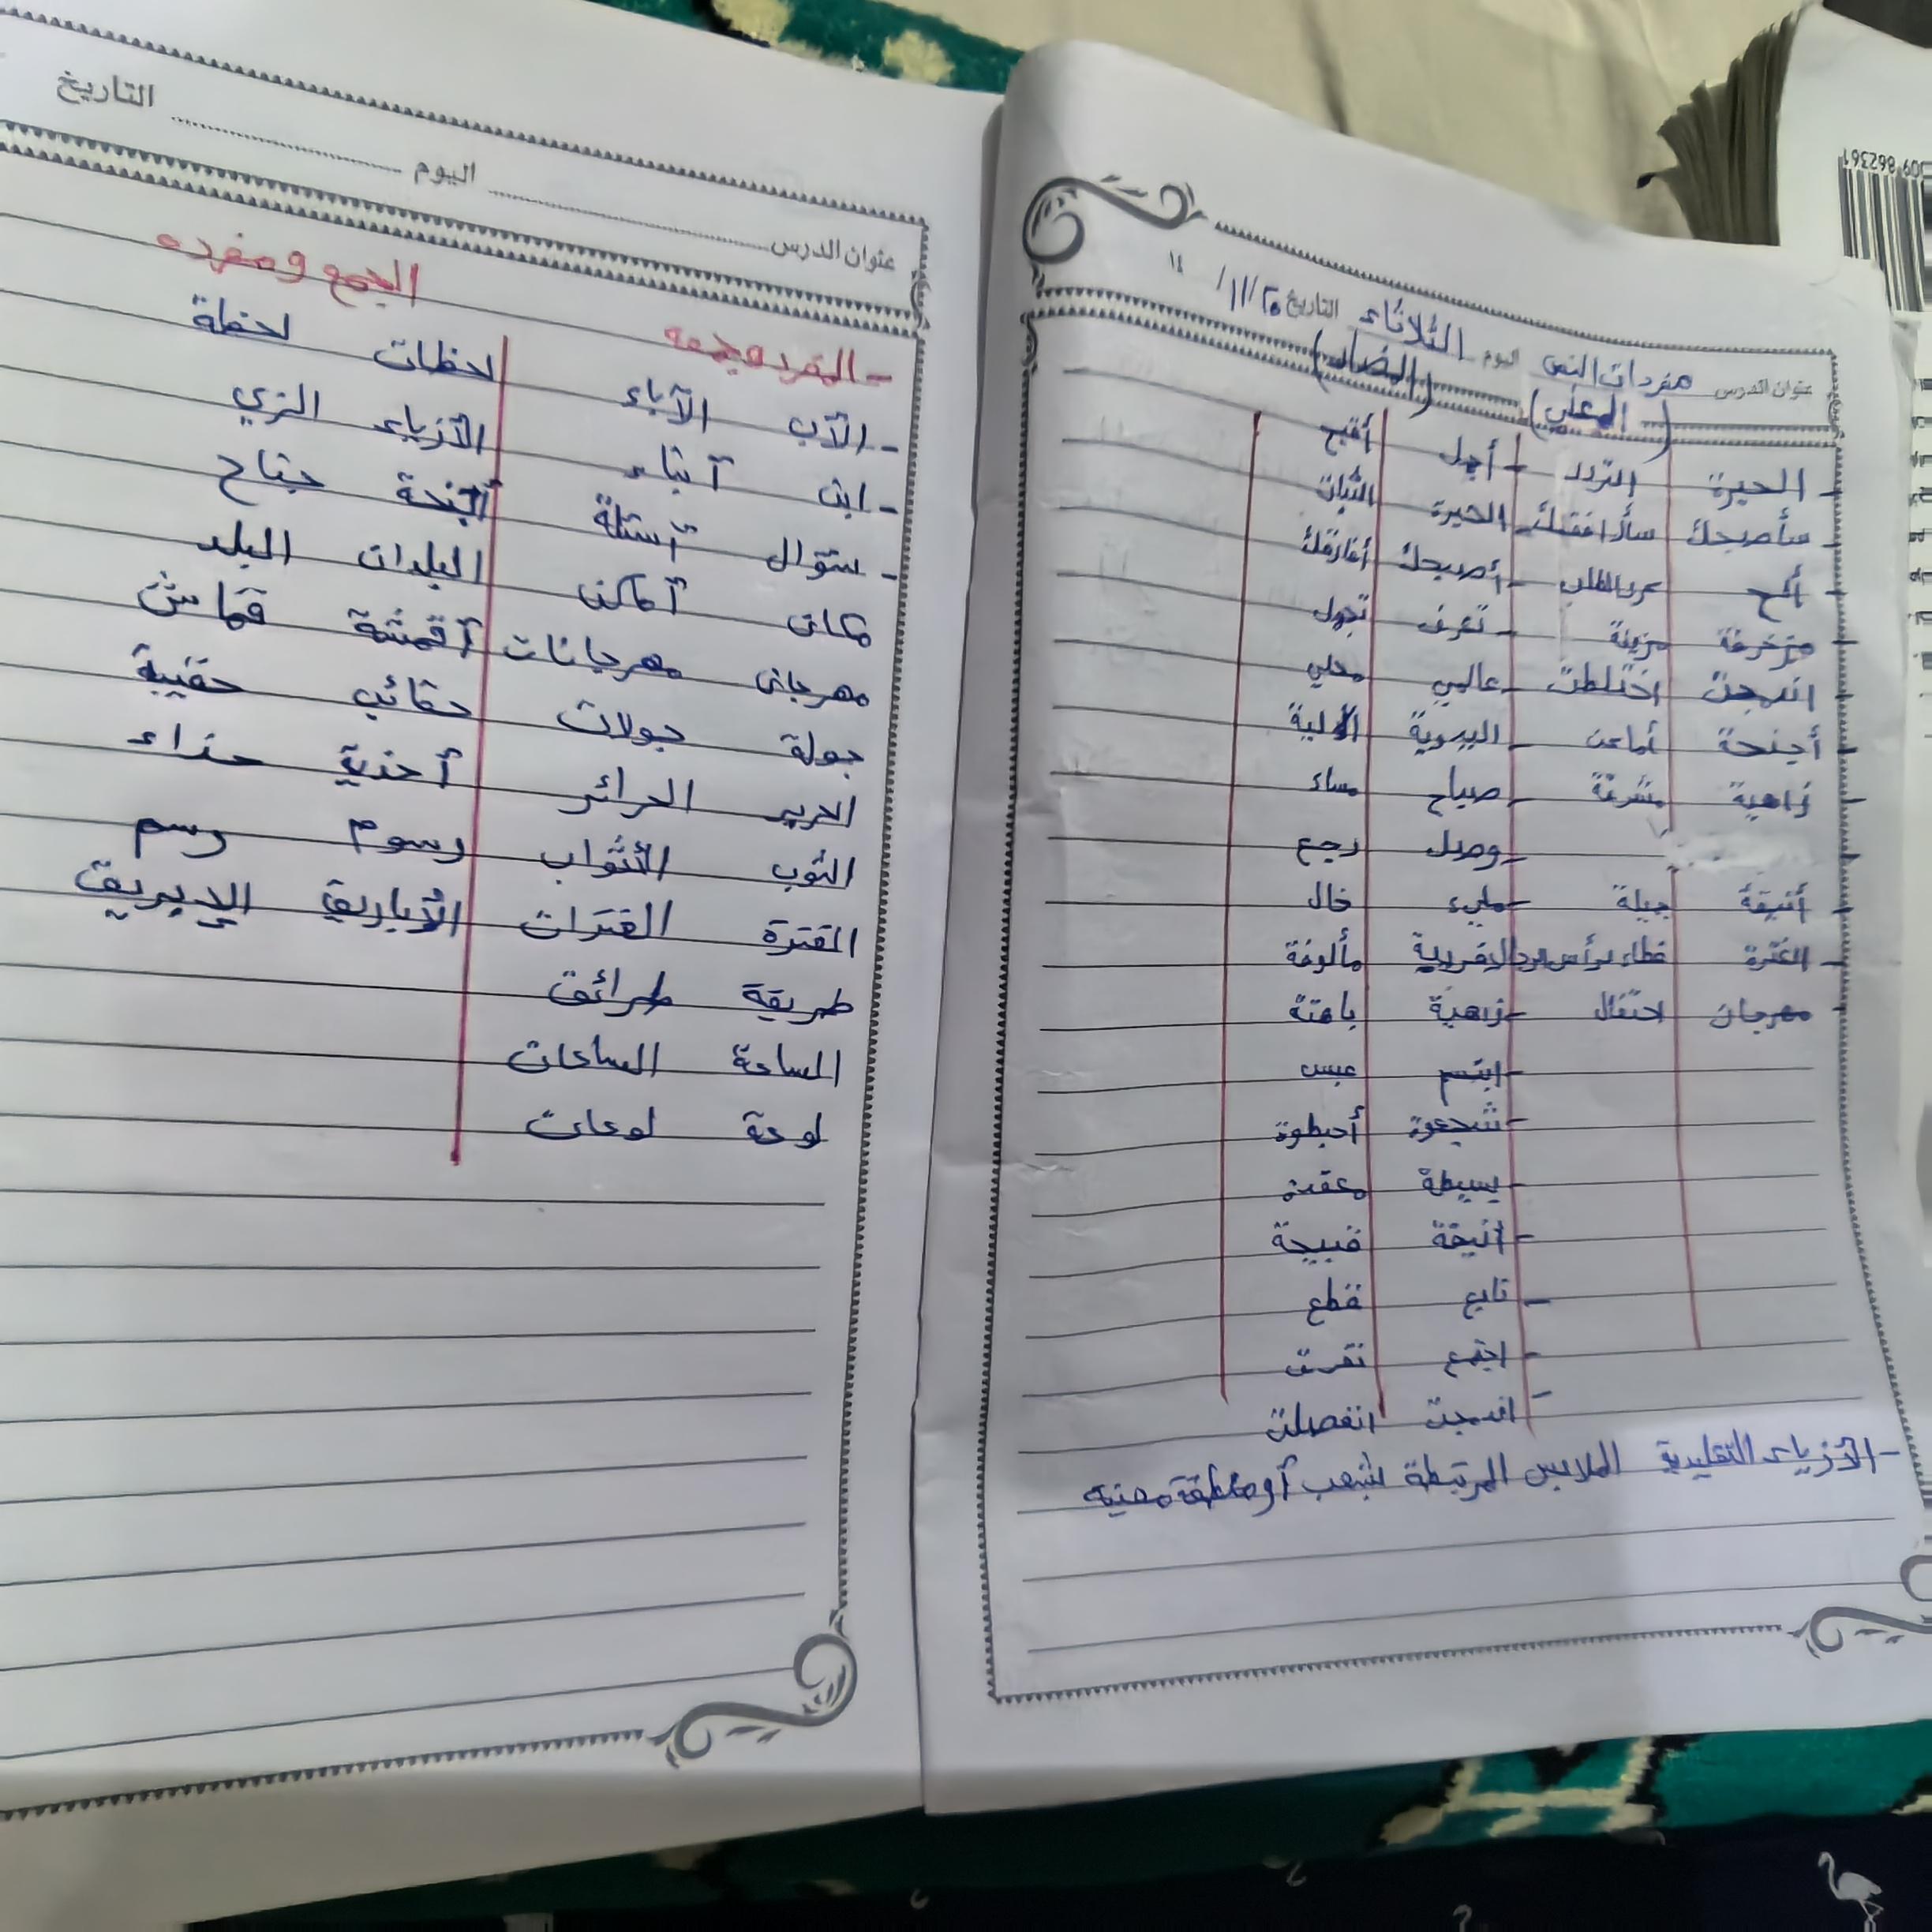 عنوان الدرس مفردات النص اليوم الثلاثاء التاريخ ٢٥/١١/
(المعاني) (المضاد)
الحيرة التردد - أجمل أقبح
سأصحبك سأرافقك - الحيرة الثبات
ألح كرر الطلب - أصحبك أفارقك
مزخرفة مزينة - تعرف تجهل
اندمجت اختلطت - عالمي محلي
أجنحة أماكن - اليدوية الآلية
زاهية مشرقة - صباح مساء
- وصل رجع
أنيقة جميلة - مليء خال
الغترة غطاء لرأس الغريبة مألوفة
مهرجان احتفال - زاهية باهتة
- ابتسم عبس
- شجعوة أحبطوة
- بسيطة معقدة
- أنيقة قبيحة
- تابع قطع
- اجتمع تفرق
- اندمجت انفصلت
- الأزياء التقليدية الملابس المرتبطة بشعب أو منطقة معينه
التاريخ
عنوان الدرس اليوم
- المفرد وجمعه الجمع ومفرده
- الأب الآباء لحظات لحظة
- ابن أبناء الأزياء الزي
- سؤال أسئلة أجنحة جناح
مكان أماكن البلدان البلد
مهرجان مهرجانات أقمشة قماش
جولة جولات حقائب حقيبة
الحرير الحرائر أحذية حذاء
الثوب الأثواب رسوم رسم
الغترة الغترات الأباريق الإبريق
طريقة طرائق
الساحة الساحات
لوحة لوحات
309 862361